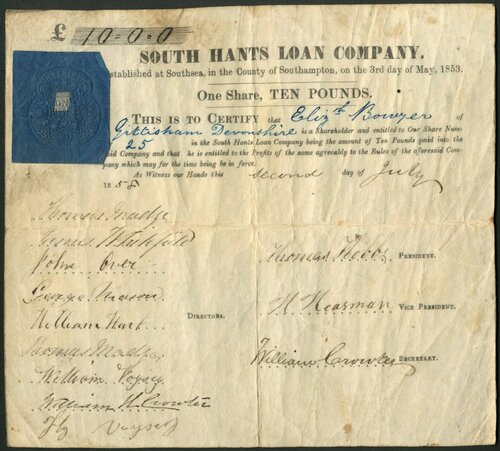 £ 10=0=0
SOUTH HANTS LOAN COMPANY,
Established at Southsea, in the County of Southampton, on the 3rd day of May, 1853.
One Share, TEN POUNDS.
THIS IS TO CERTIFY that Elizth Bowyer of
Gittisham Devonshire is a Shareholder and entitled to One Share Num-
25 in the South Hants Loan Company being the amount of Ten Pounds paid into the
said Company and that he is entitled to the Profits of the same agreeably to the Rules of the aforesaid Com-
pany which may for the time being be in force.
As Witness our Hands this second day of July
1858
Thomas Madge
John Over
George Mason
William Hart
Thomas Madge
William
William H Crowter
DIRECTORS.
Thomas PRESIDENT.
H Keasman VICE PRESIDENT.
William Crowter SECRETARY.